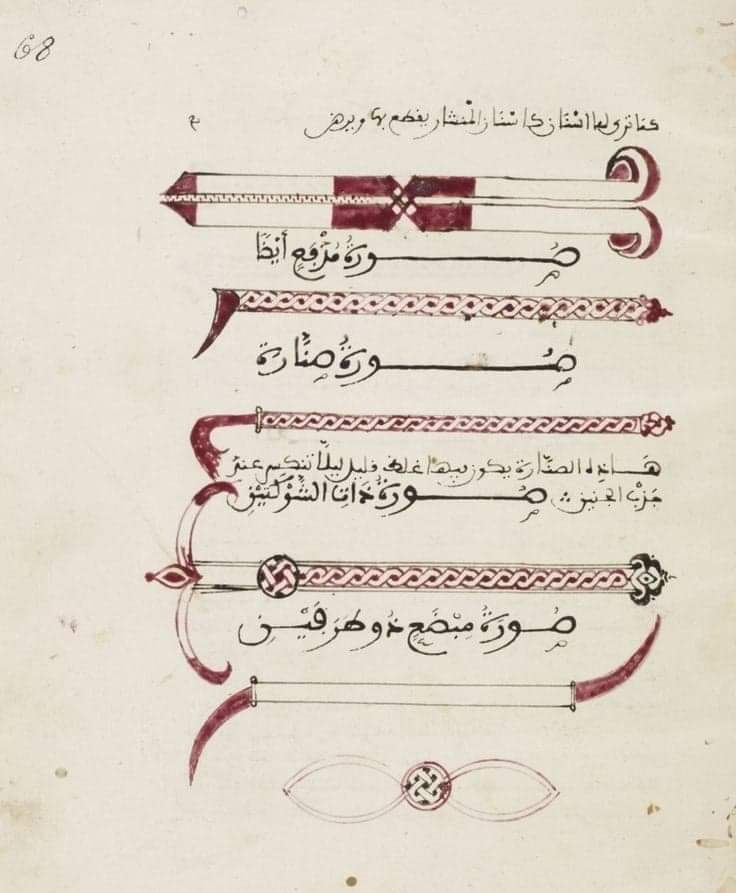 68
كما ترى لها اسنان كاسنان المنشار يقطع بها ويرض
صورة مدفع أيضا
صورة صنّارة
هاذه الصنّارة يكون فيها غلظ قليل ليلّا تنكسر عند
جذب الجنين صورة ذات الشوكتين
صورة مبضع ذو طرفين